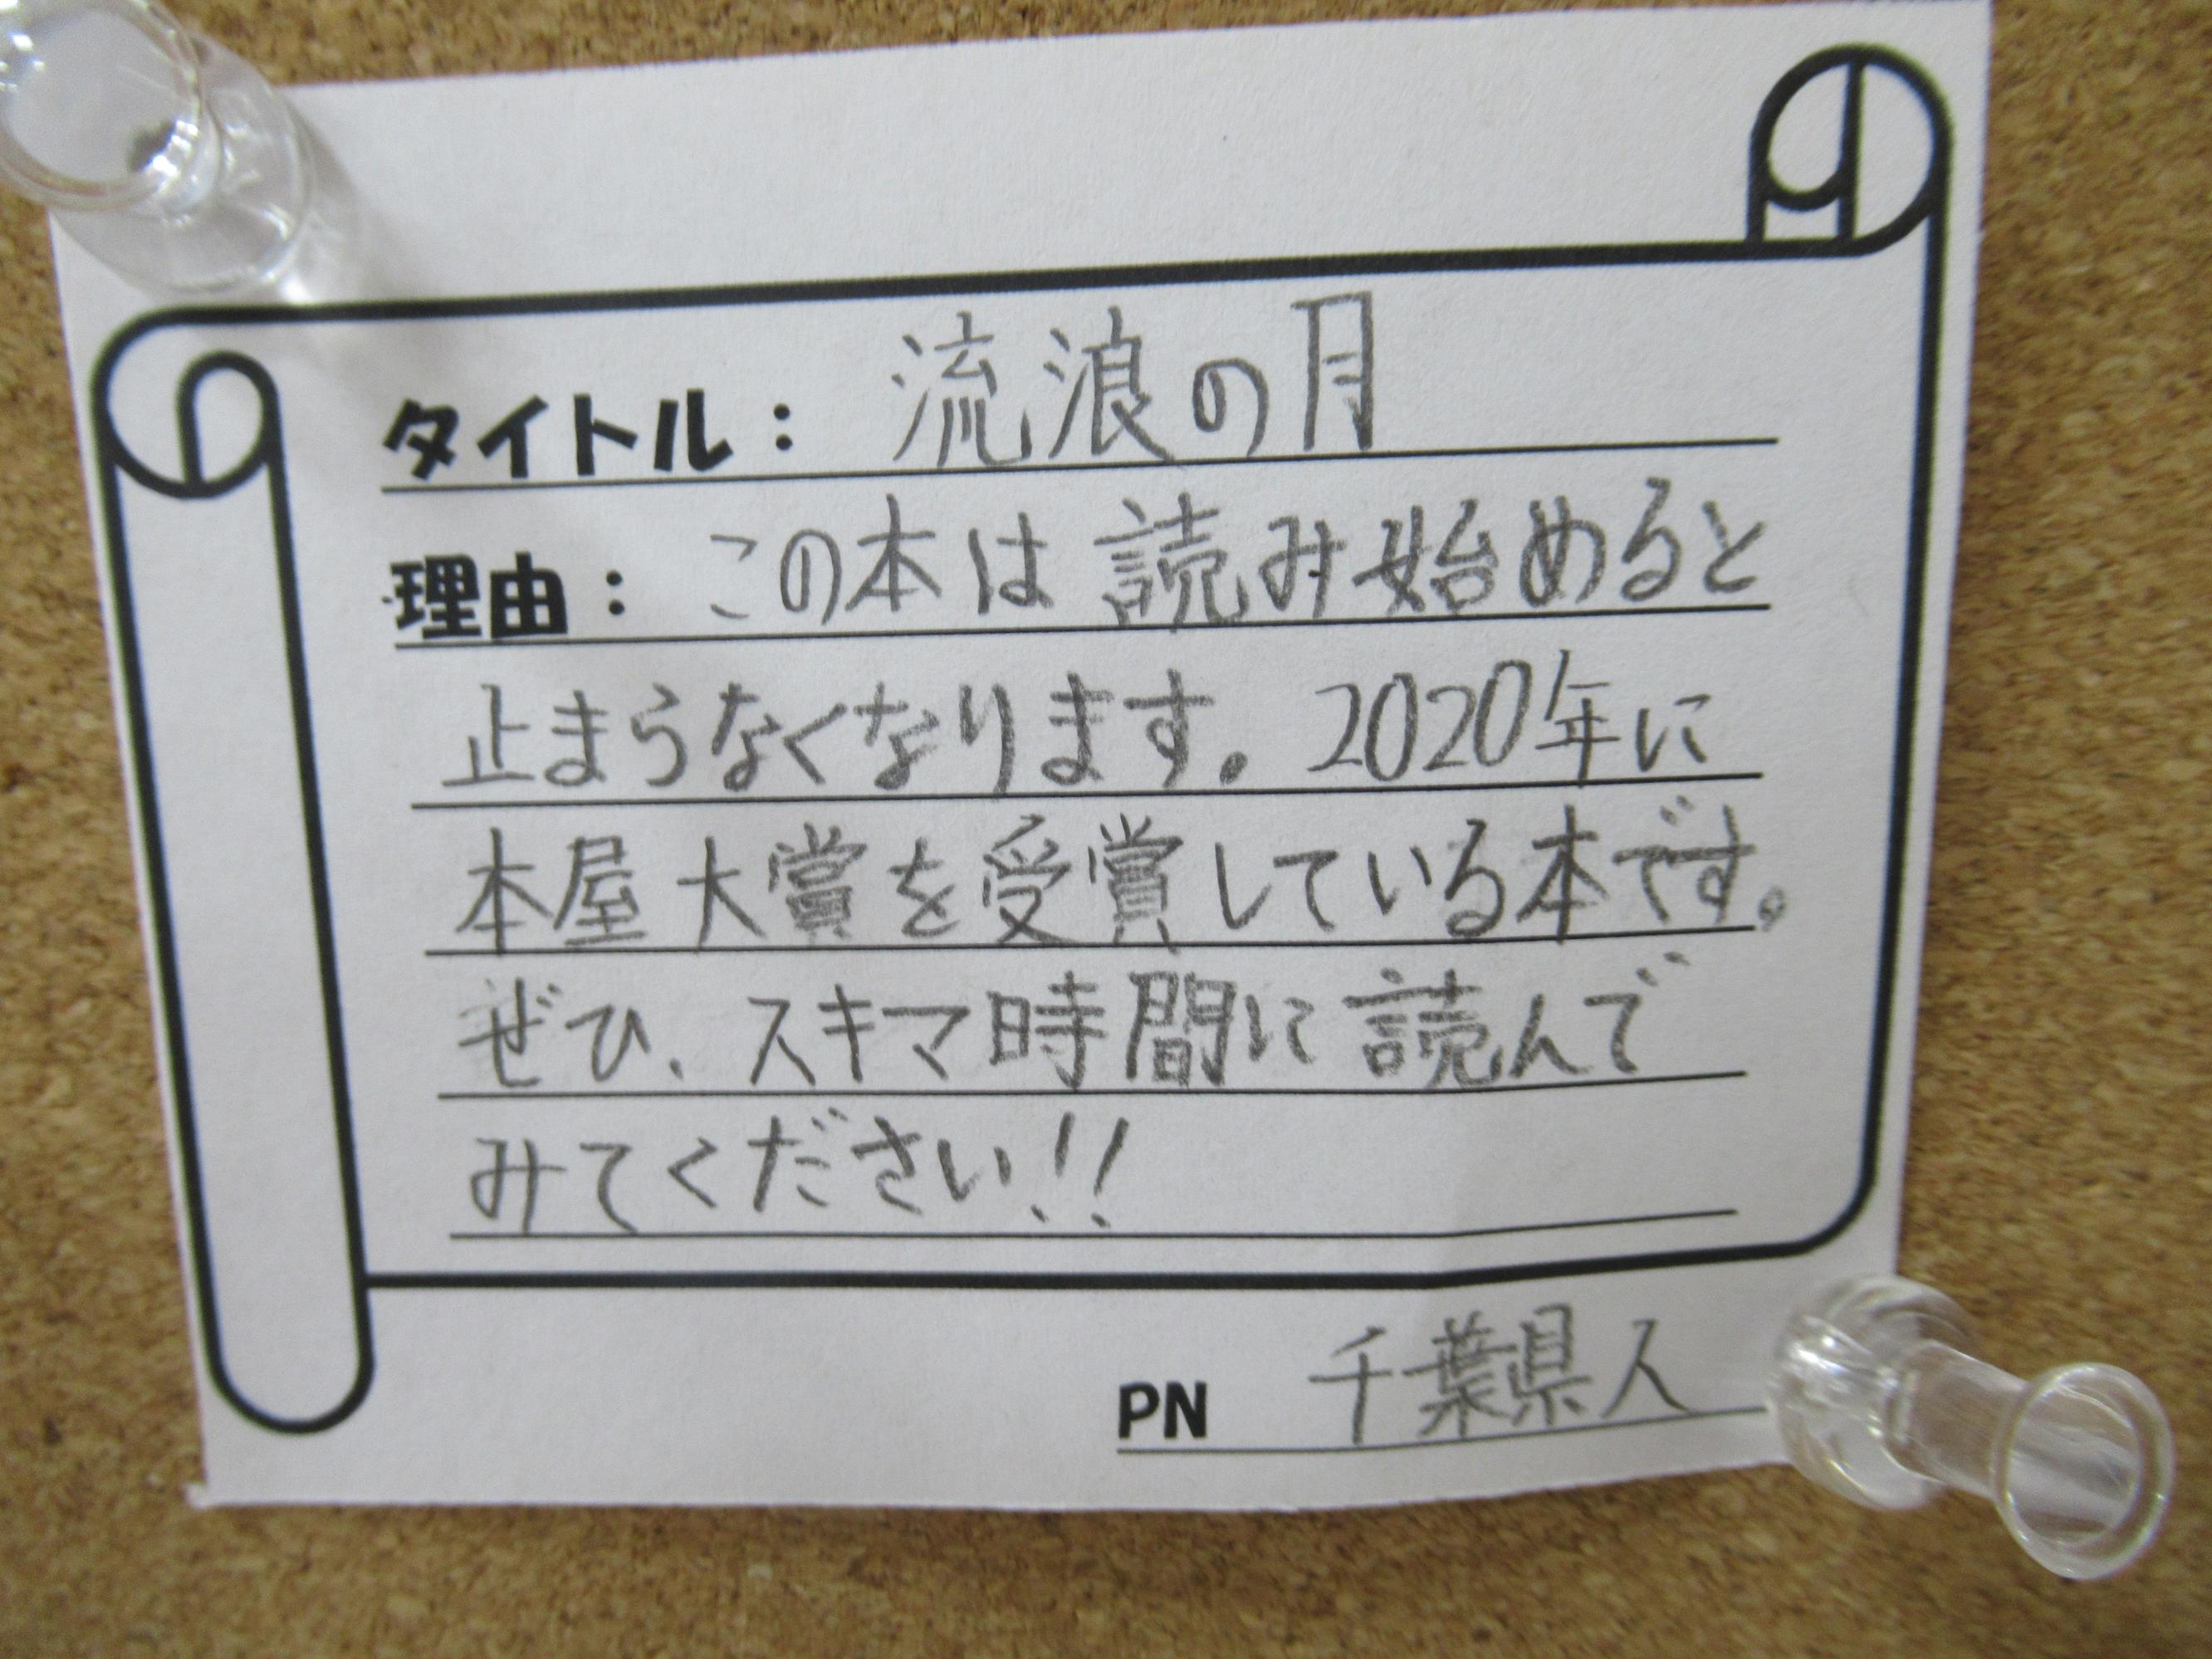 タイトル： 流浪の月
理由： この本は読み始めると
止まらなくなります。2020年に
本屋大賞を受賞している本です。
ぜひ、スキマ時間に読んで
みてください!!
PN 千葉県人